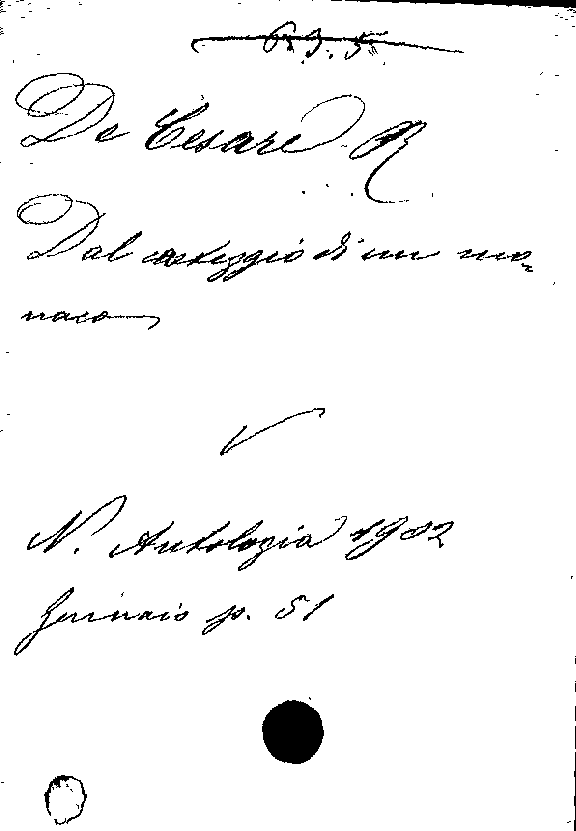 63.5
De Cesare R
Dal carteggio di un mo-
naco
N. Antologia 1902
Gennaio p. 51